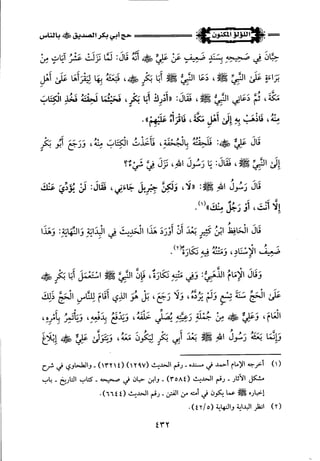 اللؤلؤ المكنون
حج أبي بكر الصديق ﷺ بالناس
حبان في صحيحه بسند ضعيف عن علي ﷺ أنه قال: لما نزلت عشر آيات من
براءة على النبي ﷺ، دعا النبي ﷺ أبا بكر ﷺ، فبعثه بها ليقرأها على أهل
مكة، ثم دعاني النبي ﷺ، فقال: «أدرك أبا بكر، فحيثما لحقته فخذ الكتاب
منه، فاذهب به إلى أهل مكة، فاقرأه عليهم».
قال علي ﷺ: فلحقته بالجحفة، فأخذت الكتاب منه، ورجع أبو بكر
إلى النبي ﷺ، فقال: يا رسول الله، نزل في شيء؟؟
قال رسول الله ﷺ: «لا، ولكن جبريل جاءني، فقال: لن يؤدي عنك
إلا أنت، أو رجل منك»(١).
قال الحافظ ابن كثير بعد أن أورد هذا الحديث في البداية والنهاية: وهذا
ضعيف الإسناد، ومتنه فيه نكارة(٢).
وقال الإمام الذهبي: وفي متنه نكارة، فإن النبي ﷺ استعمل أبا بكر ﷺ
على الحج سنة تسع ولم يرده، ولا رجع، بل هو الذي أقام للناس الحج ذلك
العام، وعلي ﷺ من جملة رعيته يصلي خلفه، ويدفع بدفعه، ويأتمر بأمره،
وإنما بعثه رسول الله ﷺ بعد أبي بكر ليكون معه، ويتولى علي ﷺ إبلاغ
(١) أخرجه الإمام أحمد في مسنده - رقم الحديث (١٢٩٧) (١٣٢١٤) - والطحاوي في شرح
مشكل الآثار - رقم الحديث (٣٥٨٤) - وابن حبان في صحيحه - كتاب التاريخ - باب
إخباره ﷺ عما يكون في أمته من الفتن - رقم الحديث (٦٦٤٤).
(٢) انظر البداية والنهاية (٤٢/٥).
٤٣٢